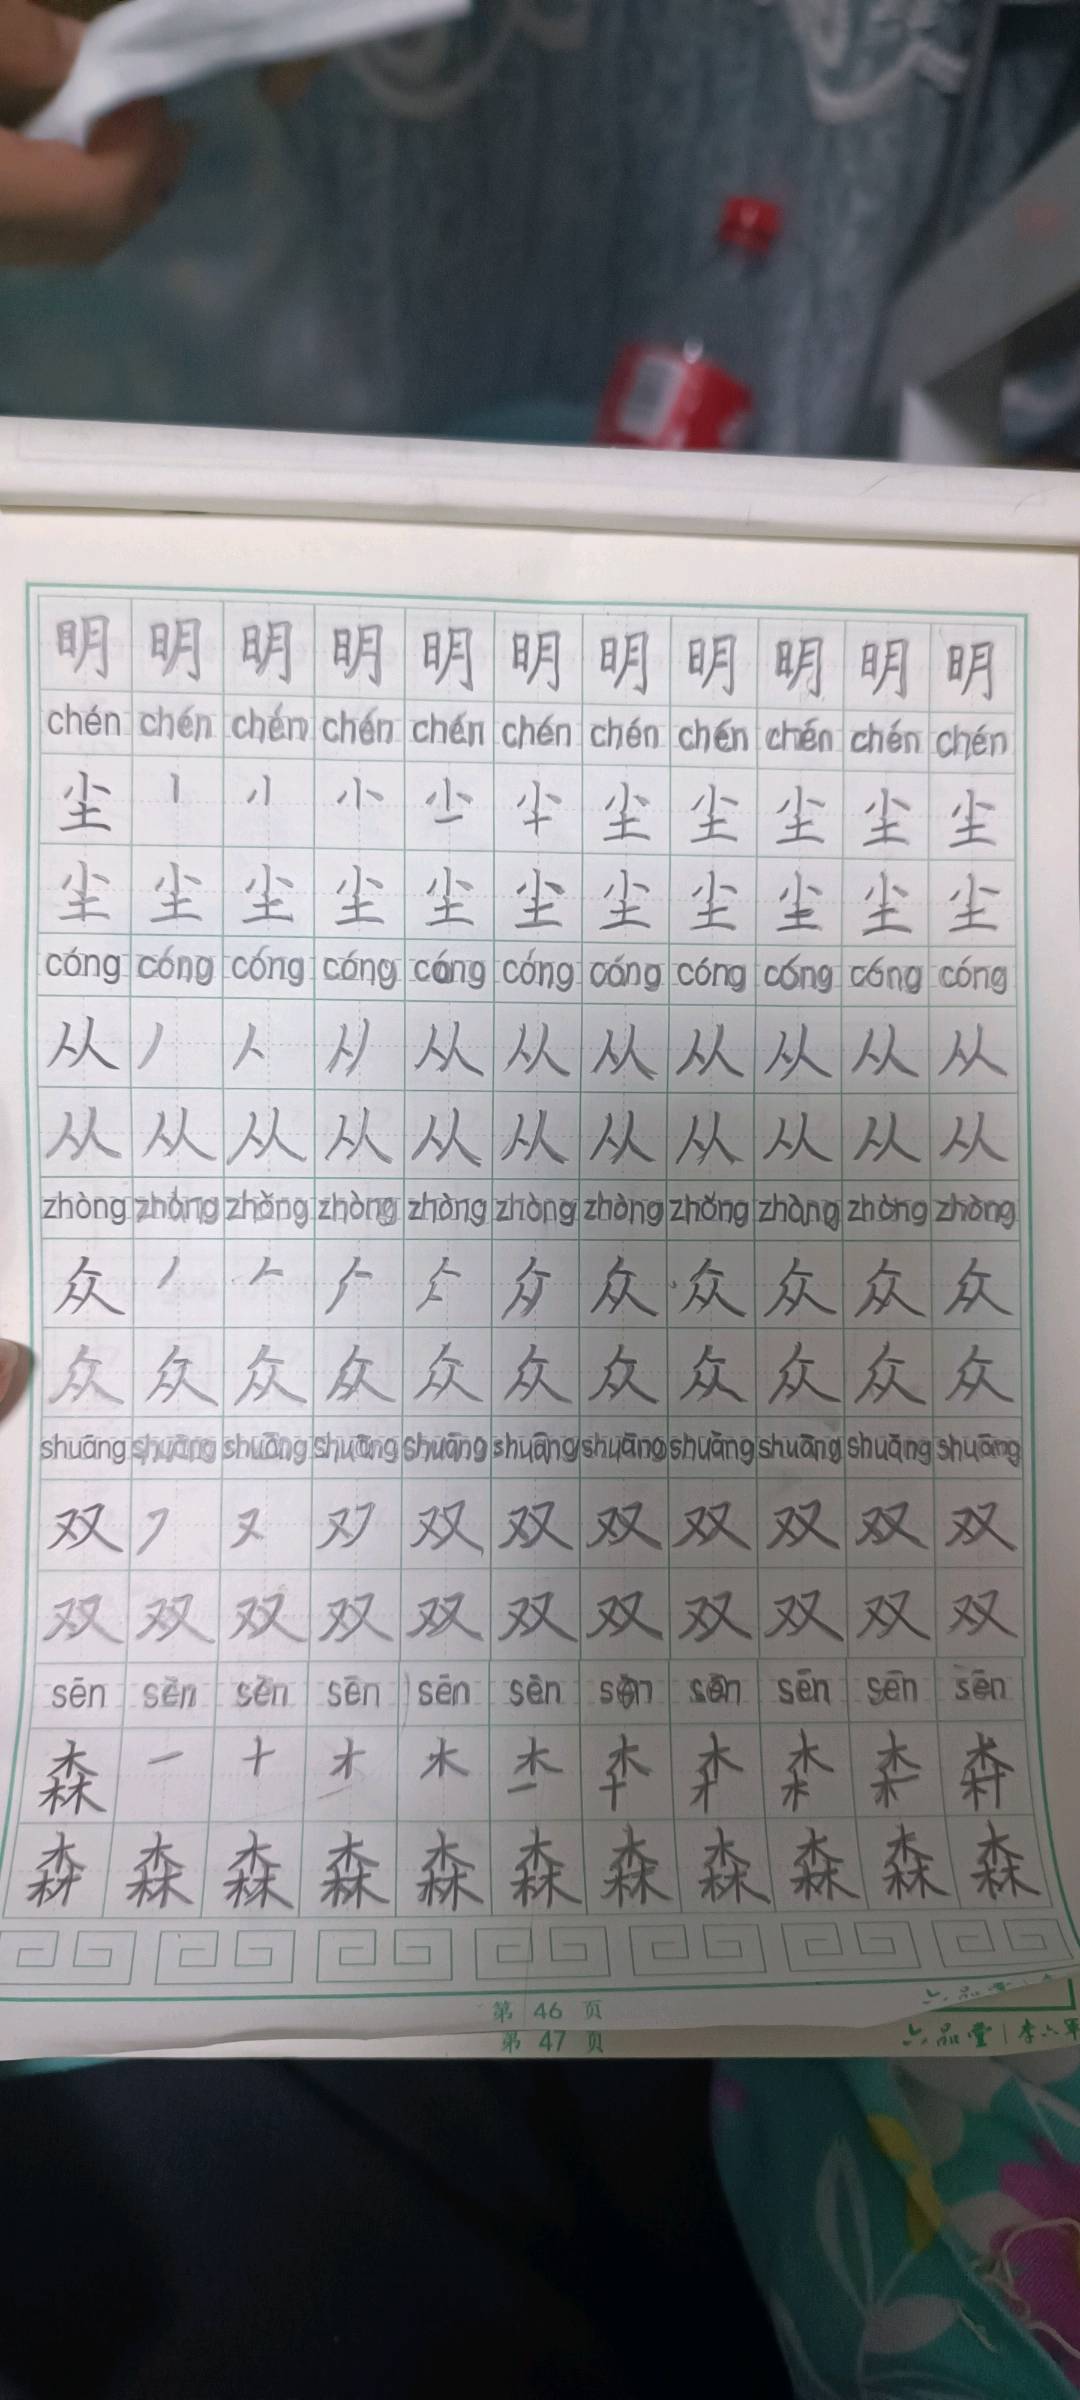 明 明 明 明 明 明 明 明 明 明 明
chén chén chén chén chén chén chén chén chén chén chén
尘 丨 小 尘 尘 尘 尘 尘
尘 尘 尘 尘 尘 尘 尘 尘 尘 尘 尘
cóng cóng cóng cóng cóng cóng cóng cóng cóng cóng cóng
从 丿 人 从 从 从 从 从 从 从
从 从 从 从 从 从 从 从 从 从 从
zhòng zhòng zhòng zhòng zhòng zhòng zhòng zhòng zhòng zhòng zhòng
众 丿 众 众 众 众 众
众 众 众 众 众 众 众 众 众 众 众
shuāng shuāng shuāng shuāng shuāng shuāng shuāng shuāng shuāng shuāng shuāng
双 又 双 双 双 双 双 双 双
双 双 双 双 双 双 双 双 双 双 双
sēn sēn sēn sēn sēn sēn sēn sēn sēn sēn sēn
森 一 十 才 木
森 森 森 森 森 森 森 森 森 森
第 46 页
第 47 页
六品堂 | 李六军